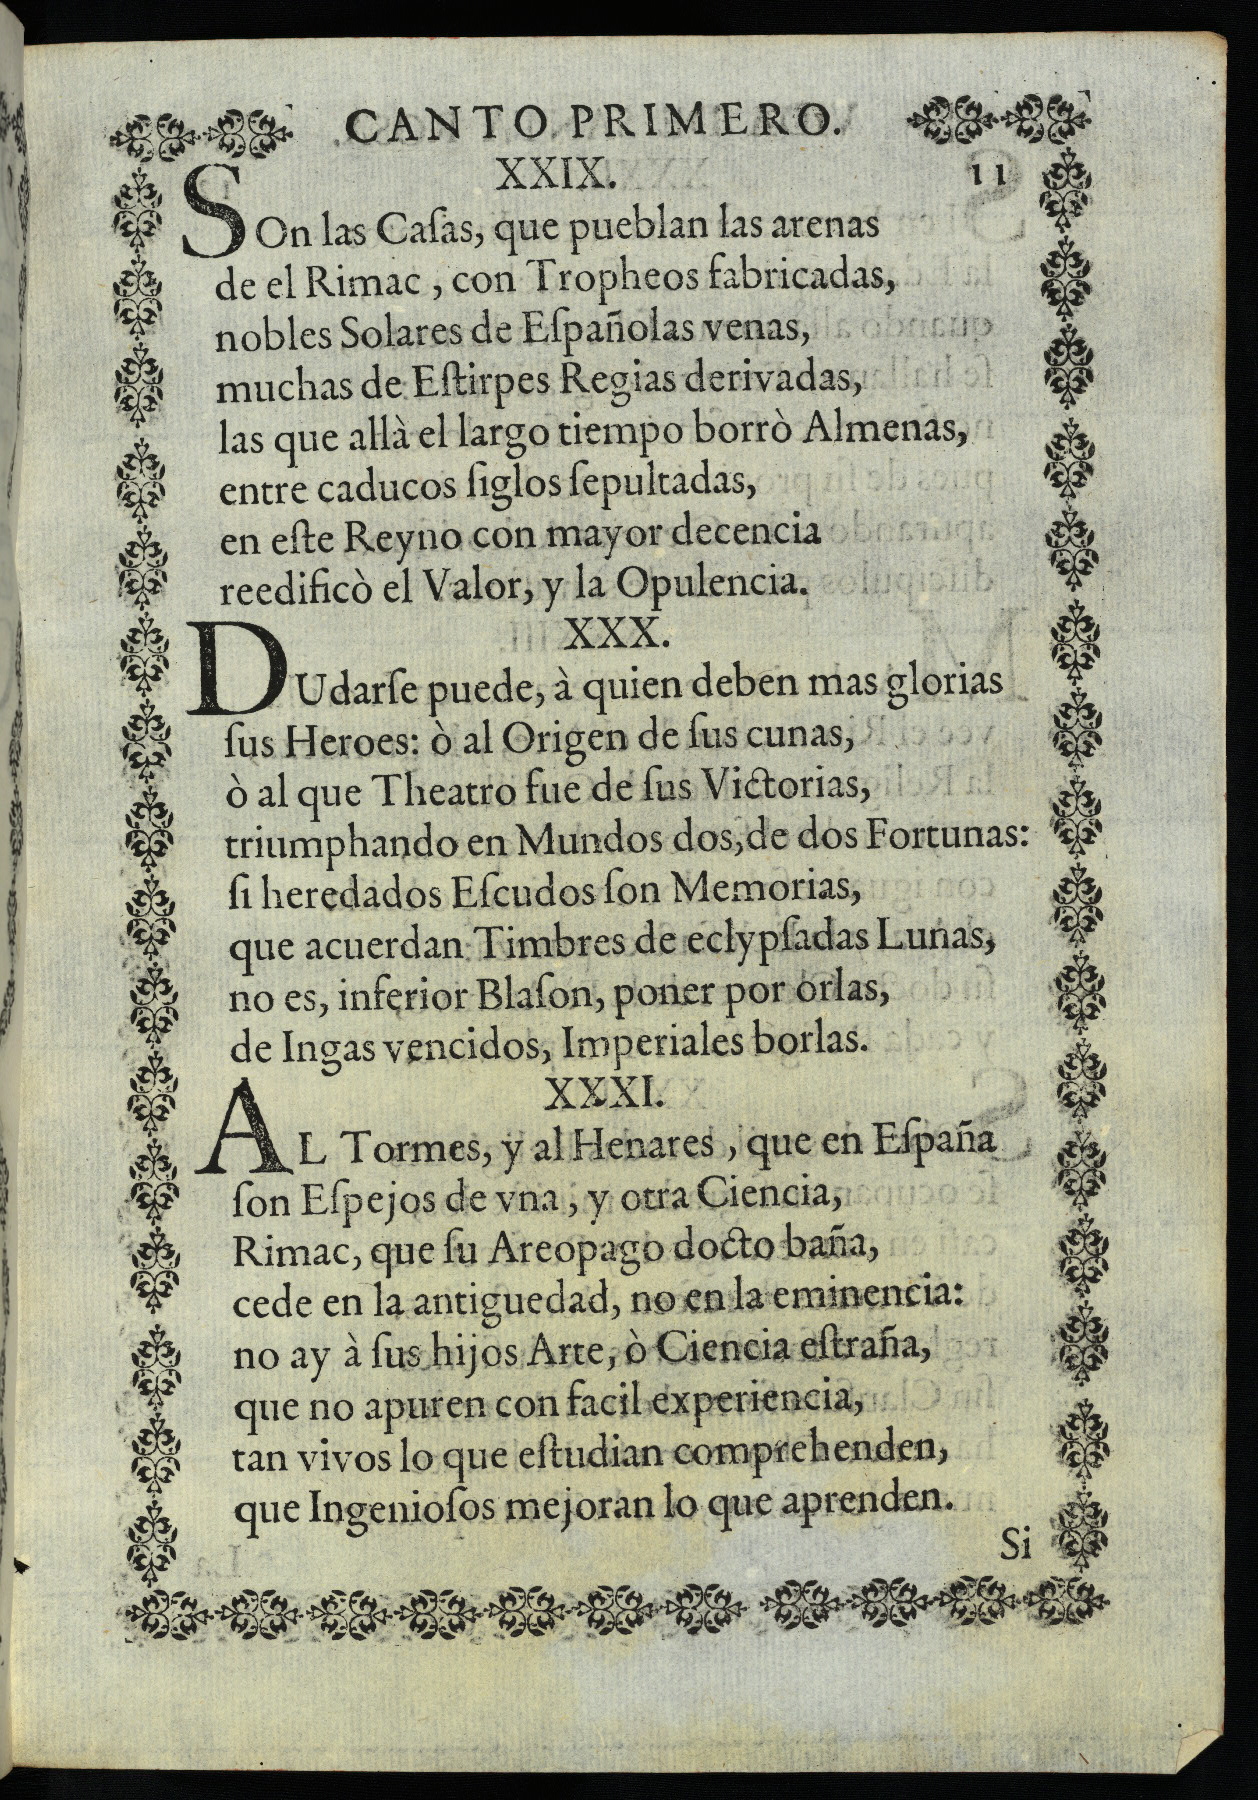 CANTO PRIMERO.
XXIX. 11
SOn las Caſas, que pueblan las arenas
de el Rimac, con Tropheos fabricadas,
nobles Solares de Eſpañolas venas,
muchas de Eſtirpes Regias derivadas,
las que allà el largo tiempo borrò Almenas,
entre caducos ſiglos ſepultadas,
en eſte Reyno con mayor decencia
reedificò el Valor, y la Opulencia.
XXX.
DUdarſe puede, à quien deben mas glorias
ſus Heroes: ò al Origen de ſus cunas,
ò al que Theatro fue de ſus Victorias,
triumphando en Mundos dos, de dos Fortunas:
ſi heredados Eſcudos ſon Memorias,
que acuerdan Timbres de eclypſadas Lunas,
no es, inferior Blaſon, poner por orlas,
de Ingas vencidos, Imperiales borlas.
XXXI.
AL Tormes, y al Henares, que en Eſpaña
ſon Eſpejos de vna, y otra Ciencia,
Rimac, que ſu Areopago docto baña,
cede en la antiguedad, no en la eminencia:
no ay à ſus hijos Arte, ò Ciencia eſtraña,
que no apuren con facil experiencia,
tan vivos lo que eſtudian comprehenden,
que Ingenioſos mejoran lo que aprenden.
Si